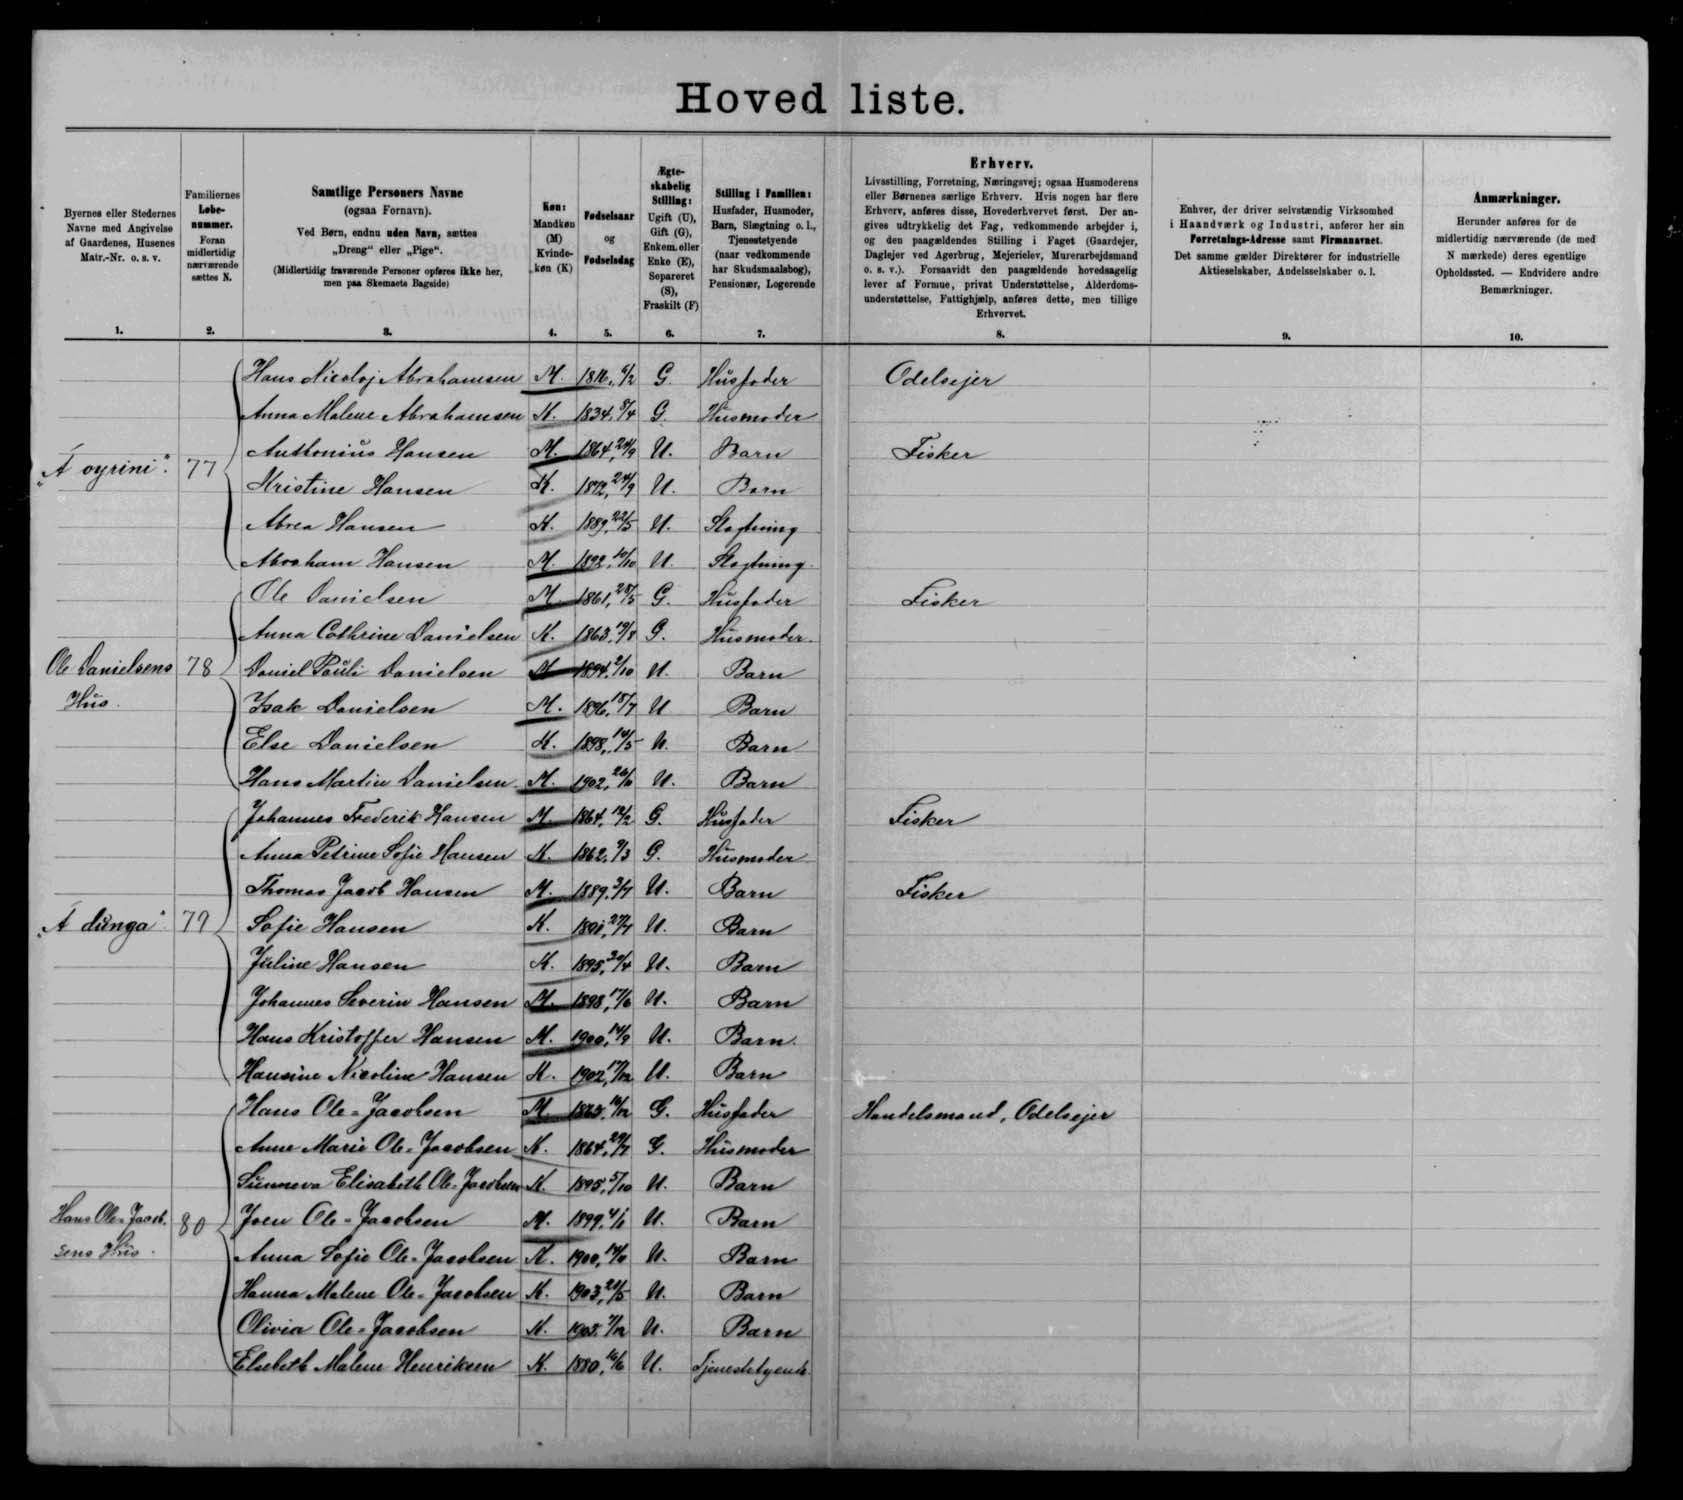 Hoved liste.
Byernes eller Stedernes
Navne med Angivelse
af Gaardenes, Husenes
Matr.-Nr. o. s. v.
1.
Familiernes
Løbe-
nummer.
Foran
midlertidig
nærværende
sættes N.
2.
Samtlige Personers Navne
(ogsaa Fornavn).
Ved Børn, endnu uden Navn, sættes
„Dreng“ eller „Pige“.
(Midlertidig fraværende Personer opføres ikke her,
men paa Skemaets Bagside)
3.
Køn:
Mandkøn
(M)
Kvinde-
køn (K)
4.
Fødselsaar
og
Fødselsdag
5.
Ægte-
skabelig
Stilling:
Ugift (U),
Gift (G),
Enkem. eller
Enke (E),
Separeret
(S),
Fraskilt (F)
6.
Stilling i Familien:
Husfader, Husmoder,
Barn, Slægtning o. l.,
Tjenestetyende
(naar vedkommende
har Skudsmaalsbog),
Pensionær, Logerende
7.
Erhverv.
Livsstilling, Forretning, Næringsvej; ogsaa Husmoderens
eller Børnenes særlige Erhverv. Hvis nogen har flere
Erhverv, anføres disse, Hovederhvervet først. Der an-
gives udtrykkelig det Fag, vedkommende arbejder i,
og den paagældendes Stilling i Faget (Gaardejer,
Daglejer ved Agerbrug, Mejerielev, Murerarbejdsmand
o. s. v.). Forsaavidt den paagældende hovedsagelig
lever af Formue, privat Understøttelse, Alderdoms-
understøttelse, Fattighjælp, anføres dette, men tillige
Erhvervet.
8.
Enhver, der driver selvstændig Virksomhed
i Haandværk og Industri, anfører her sin
Forretnings-Adresse samt Firmanavnet.
Det samme gælder Direktører for industrielle
Aktieselskaber, Andelsselskaber o. l.
9.
Anmærkninger.
Herunder anføres for de
midlertidig nærværende (de med
N mærkede) deres egentlige
Opholdssted. — Endvidere andre
Bemærkninger.
10.
Hans Nicolaj Abrahamsen M. 1816, 6/2 G. Husfader Odelsejer
Anna Malene Abrahamsen K. 1834, 8/4 G. Husmoder
Anthonius Hansen M. 1864, 24/9 U. Barn Fisker
„Á oyrini“. 77 Kristine Hansen K. 1872, 24/9 U. Barn
Abrea Hansen K. 1889, 22/5 U. Slægtning
Abraham Hansen M. 1892, 10/10 U. Slægtning.
Ole Danielsen M. 1861, 28/5 G. Husfader Fisker
Anna Cathrine Danielsen K. 1863, 19/8 G. Husmoder.
Ole Danielsens 78 Daniel Pauli Danielsen M 1894, 2/10 U. Barn
Hus. Isak Danielsen M. 1896, 18/7 U Barn
Else Danielsen K. 1898, 14/5 U. Barn
Hans Martin Danielsen. M. 1902, U. Barn
Johannes Frederik Hansen M. 1864, 12/2 G. Husfader Fisker
Anna Petrine Sofie Hansen K. 1862, 9/3 G. Husmoder
Thomas Jacob Hansen M. 1889, 3/7 U. Barn Fisker
„Á dunga“. 79 Sofie Hansen K. 27/7 U. Barn
Juline Hansen K. 1895, 20/4 U. Barn
Johannes Severin Hansen M. 1898, 17/6 U. Barn
Hans Kristoffer Hansen M. 1900, 14/9 U. Barn.
Hansine Nicoline Hansen K. 1902, 17/12 U. Barn
Hans Ole-Jacobsen M. G. Husfader Handelsmand, Odelsejer
Anne Marie Ole-Jacobsen K. 1864, 29/7 G. Husmoder
Sunneva Elisabeth Ole-Jacobsen K. 1895, 5/10 U. Barn
Hans Ole-Jacob- 80 Joen Ole-Jacobsen M. 1899, 4/1 U. Barn
sens Hus. Anna Sofie Ole-Jacobsen K. 1900, U. Barn
Hanna Malene Ole-Jacobsen K. 1903, 21/5 U. Barn
Olivia Ole-Jacobsen K. 1905, U. Barn
Elsebeth Malene Henriksen K. 1880, 16/6 U. Tjenestetyende